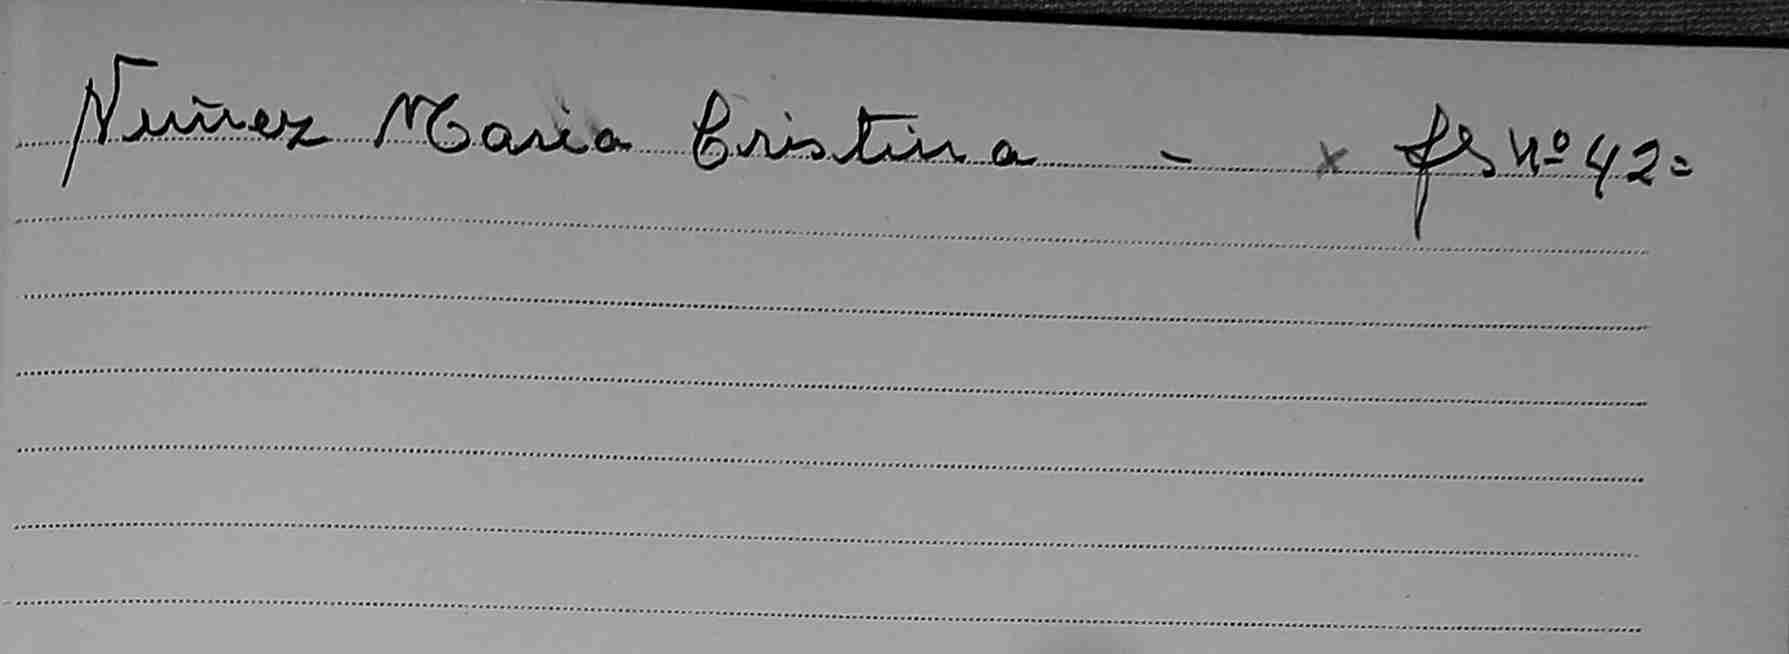 Nuñez Maria Cristina - x fs nº 42=